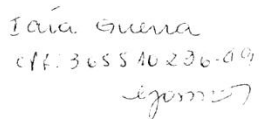 Iaía Guerra
CPF: 365510236-09